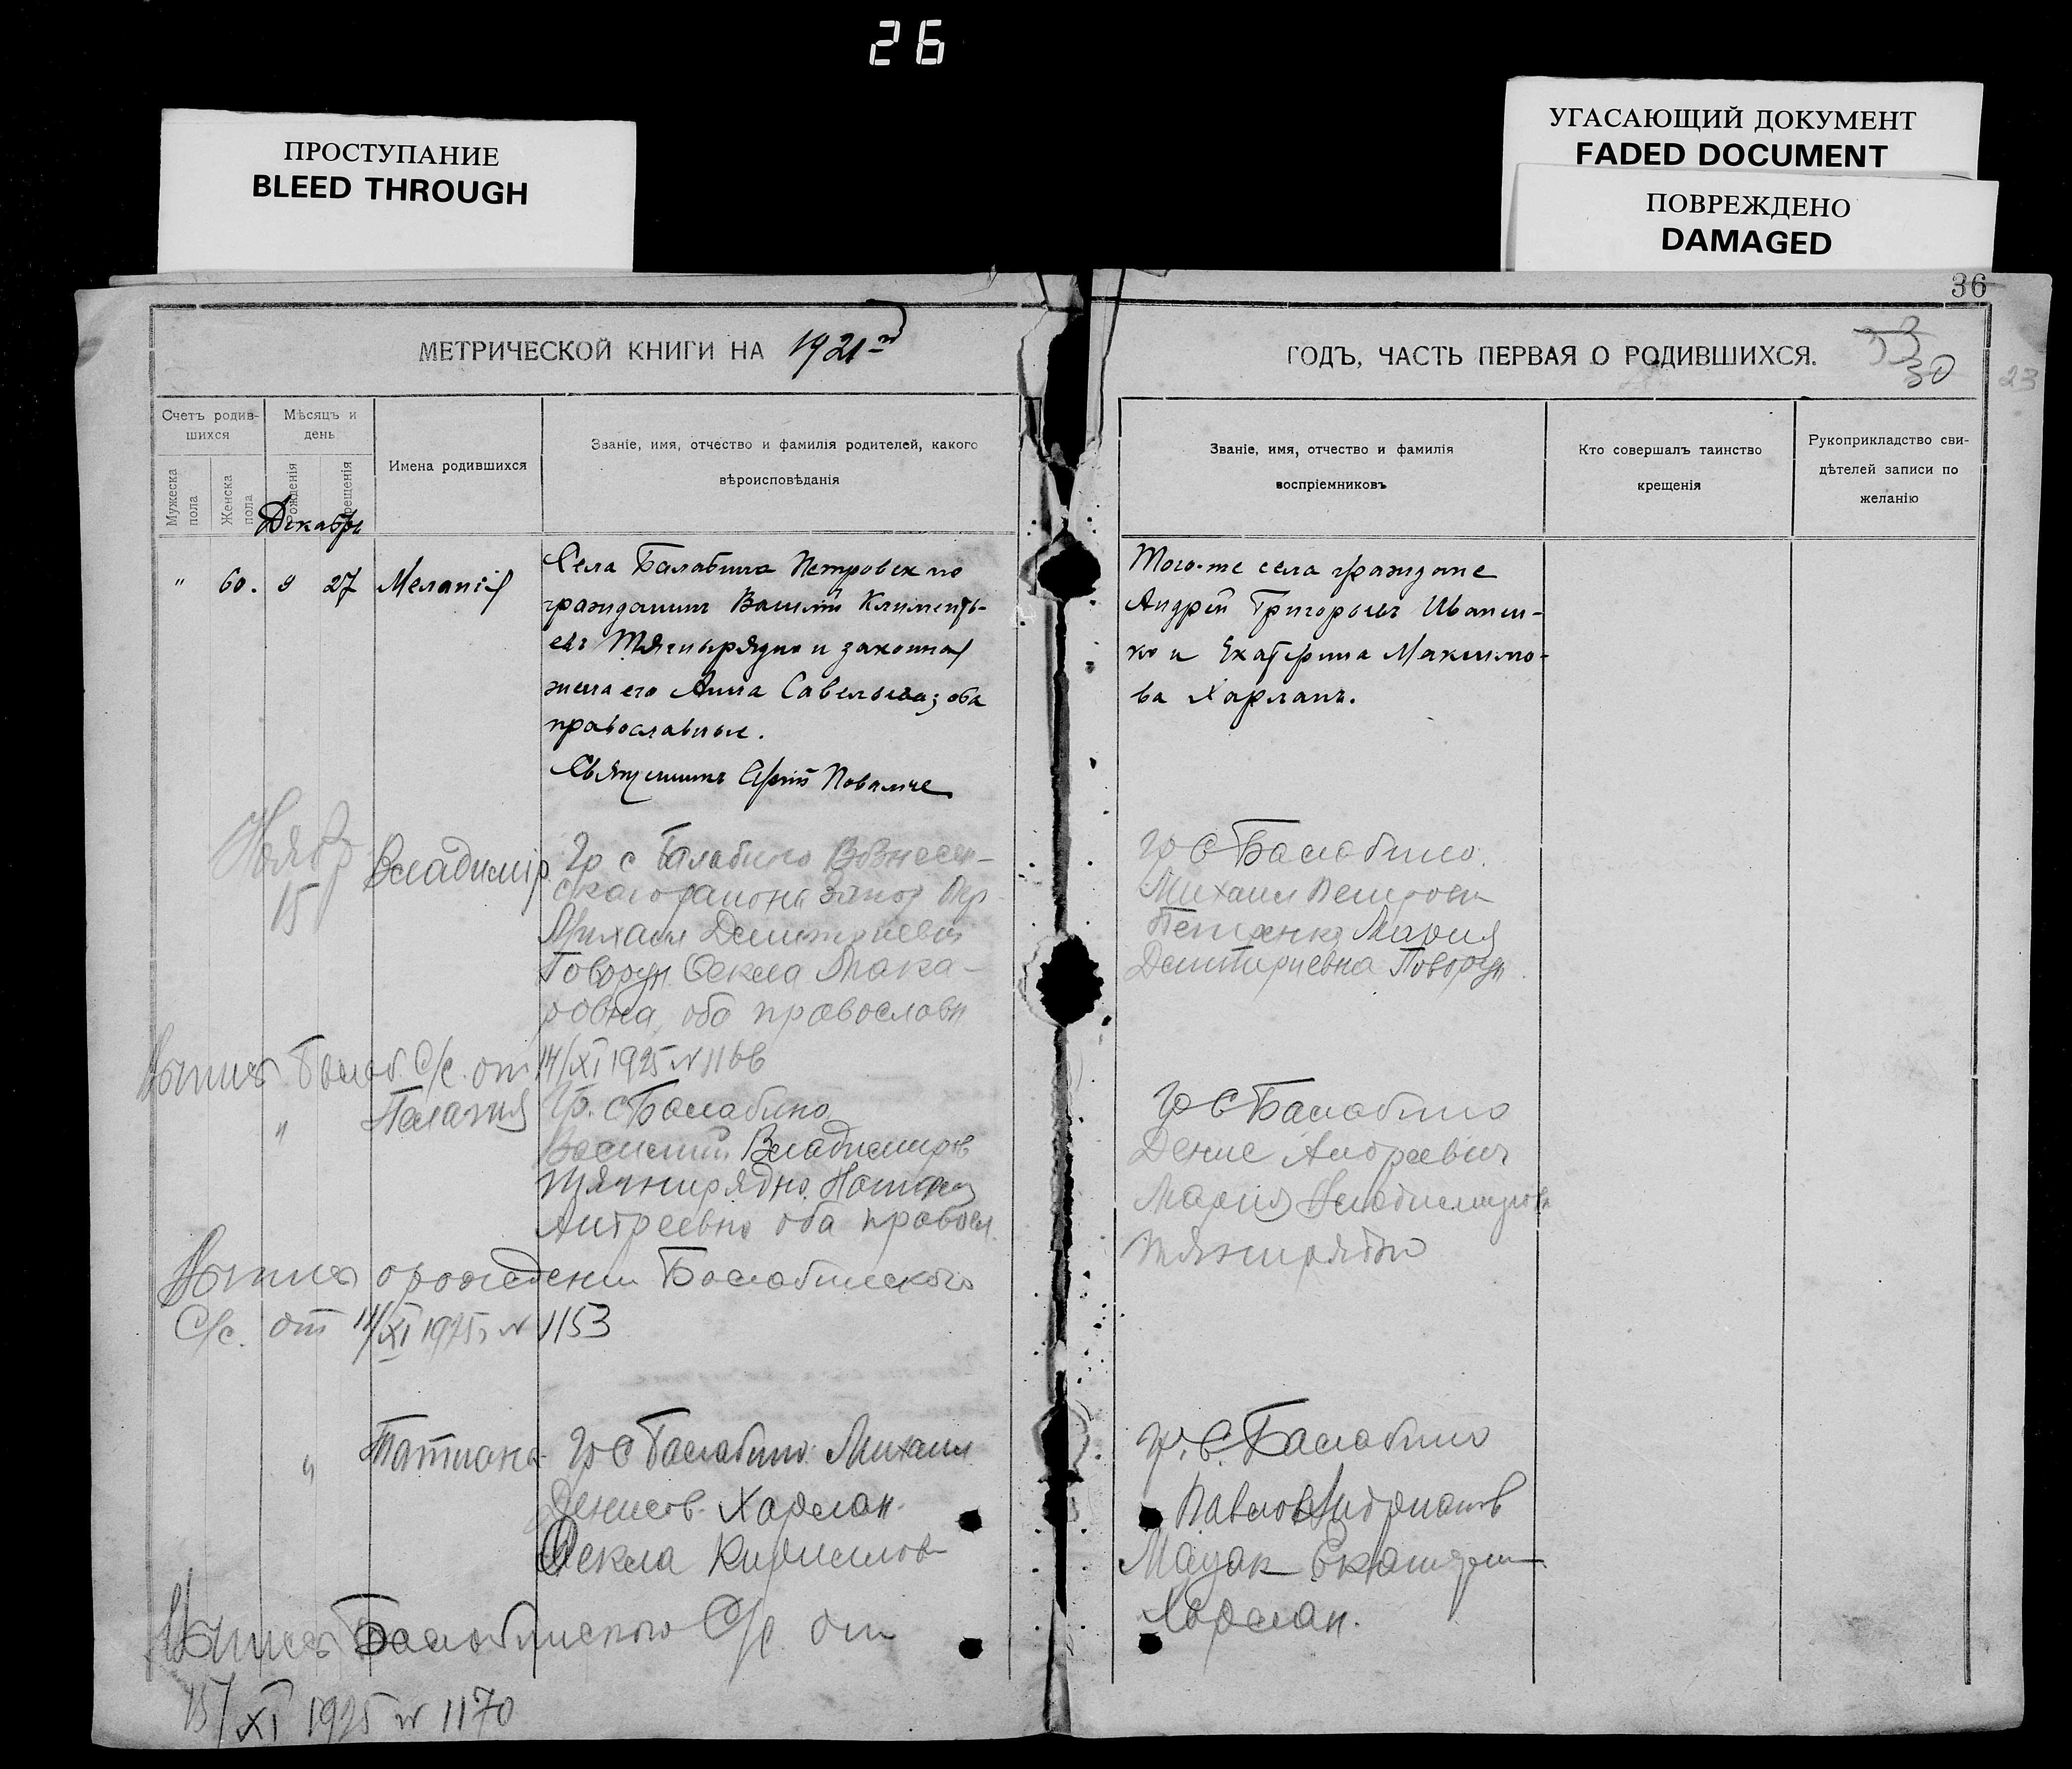 26
ПРОСТУПАНИЕ
BLEED THROUGH
УГАСАЮЩИЙ ДОКУМЕНТ
FADED DOCUMENT
ПОВРЕЖДЕНО
DAMAGED
36
МЕТРИЧЕСКОЙ КНИГИ НА 1921
ГОДЪ, ЧАСТЬ ПЕРВАЯ О РОДИВШИХСЯ.
33
30
23
Счетъ родив-
шихся
Мѣсяцъ и
день
Мужеска
пола
Женска
пола
Рожденія
Крещенія
Имена родившихся
Званіе, имя, отчество и фамилія родителей, какого
вѣроисповѣданія
Званіе, имя, отчество и фамилія
воспріемниковъ
Кто совершалъ таинство
крещенія
Рукоприкладство сви-
дѣтелей записи по
желанію
Декабрь
" 60. 9 27 Меланія
Села Балабина Петровск по
гражданинъ Василій Климентъ-
евъ Тягнырядно и законная
жена его Анна Савельева; оба
православные.
Священникъ Повалче
Того-же села граждане
Андрей Григорьевъ Иванен-
ко и Екатерина Максимо-
ва Харланъ.
Ноябр
15
Владимір
Гр с Балабино Вознесен-
ского района Запор Окр
Михаил Демитриевич
Говорун Фекла Мака-
ровна, оба православн
Гр С Балабино
Михаил Петрович
Петренко Мария
Демитриевна Говорун
Выпись Балаб С/с. от 14/XI 1925 N 1166
" Пелагия
Гр. с Балабино
Василий Владимиров
Тягнирядно Наталия
Антреевна оба правосл.
Гр С Балабино
Денис Андреевич
Мария Владимировн
Тягнирядно
Выпись о рождении Балабинского
С/с. от 14/XI 1925 г N 1153
" Татиана
Гр С Балабино Михаил
Денисов. Харлан.
Фекла Кирилов
Гр. С. Балабино
Павлов Андрианов
Мацак Екатерин
Харлан.
Выпись Балабинского С/с. от
15/XI 1925 N 1170